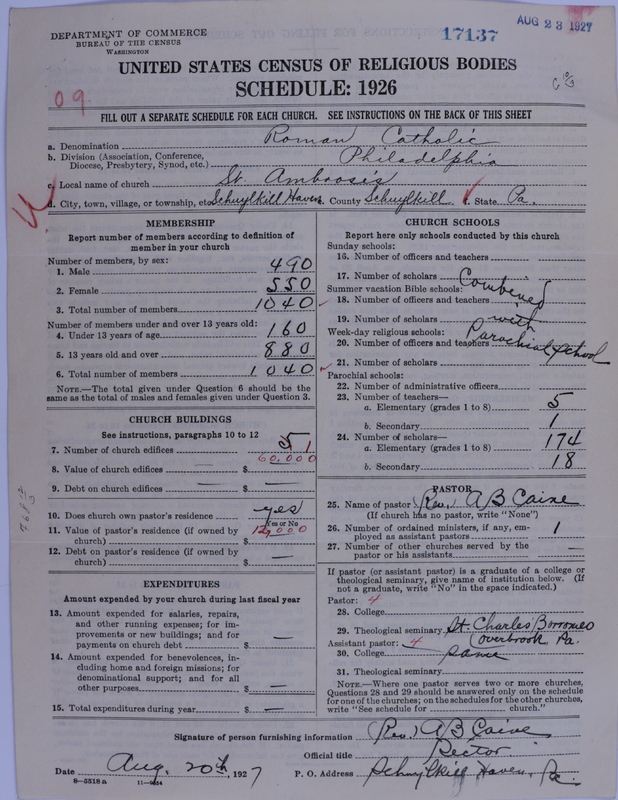 DEPARTMENT OF COMMERCE
BUREAU OF THE CENSUS
WASHINGTON
17137
AUG 23 1927
UNITED STATES CENSUS OF RELIGIOUS BODIES
SCHEDULE: 1926
09
FILL OUT A SEPARATE SCHEDULE FOR EACH CHURCH. SEE INSTRUCTIONS ON THE BACK OF THIS SHEET
a. Denomination Roman Catholic
b. Division (Association, Conference, Diocese, Presbytery, Synod, etc.) Philadelphia
c. Local name of church St. Ambrosis
d. City, town, village, or township, etc. Schuylkill Haven e. County Schuylkill f. State Pa.
MEMBERSHIP
Report number of members according to definition of
member in your church
Number of members, by sex:
1. Male 490
2. Female 550
3. Total number of members 1040
Number of members under and over 13 years old:
4. Under 13 years of age 160
5. 13 years old and over 880
6. Total number of members 1040
NOTE.—The total given under Question 6 should be the
same as the total of males and females given under Question 3.
CHURCH BUILDINGS
See instructions, paragraphs 10 to 12
7. Number of church edifices 5 1
8. Value of church edifices — $ 60,000
9. Debt on church edifices — $ —
10. Does church own pastor's residence yes
Yes or No
11. Value of pastor's residence (if owned by
church) $ 12,000
12. Debt on pastor's residence (if owned by
church) $ —
EXPENDITURES
Amount expended by your church during last fiscal year
13. Amount expended for salaries, repairs,
and other running expenses; for im-
provements or new buildings; and for
payments on church debt $ —
14. Amount expended for benevolences, in-
cluding home and foreign missions; for
denominational support; and for all
other purposes $ —
15. Total expenditures during year $ —
CHURCH SCHOOLS
Report here only schools conducted by this church
Sunday schools:
16. Number of officers and teachers
17. Number of scholars Combined
Summer vacation Bible schools:
18. Number of officers and teachers
19. Number of scholars with
Week-day religious schools:
20. Number of officers and teachers Parochial School
21. Number of scholars
Parochial schools:
22. Number of administrative officers
23. Number of teachers—
a. Elementary (grades 1 to 8) 5
b. Secondary 1
24. Number of scholars—
a. Elementary (grades 1 to 8) 174
b. Secondary 18
PASTOR
25. Name of pastor (Rev.) A B Caine
(If church has no pastor, write "None")
26. Number of ordained ministers, if any, em-
ployed as assistant pastors 1
27. Number of other churches served by the
pastor or his assistants —
If pastor (or assistant pastor) is a graduate of a college or
theological seminary, give name of institution below. (If
not a graduate, write "No" in the space indicated.)
Pastor: 4
28. College
29. Theological seminary St. Charles Borromeo
Assistant pastor: 4 (Overbrook Pa.
30. College same
31. Theological seminary
NOTE.—Where one pastor serves two or more churches,
Questions 28 and 29 should be answered only on the schedule
for one of the churches; on the schedules for the other churches,
write "See schedule for church."
Signature of person furnishing information (Rev.) A B Caine
Official title Rector
Date Aug. 20th, 1927 P. O. Address Schuylkill Haven, Pa.
8—5518 a